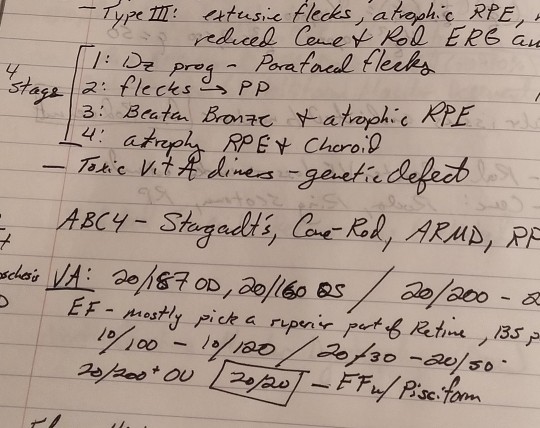 - Type III: extusic flecks, atrophic RPE,
reduced Cone & Rod ERG an
4 Stage
1: Dz prog - Parafoveal flecks
2: flecks → PP
3: Beaten Bronze & atrophic RPE
4: atrophy RPE & Choroid
- Toxic Vit A dimers - genetic defect
ABC4 - Stargadt's, Cone-Rod, ARMD, RP
VA: 20/187 OD, 20/160 OS / 20/200 - 2
EF - mostly pick a superior part of Retine, 135 p
10/100 - 10/120 / 20/30 - 20/50
20/200+ OU 20/20 - EF w/ Pisciform